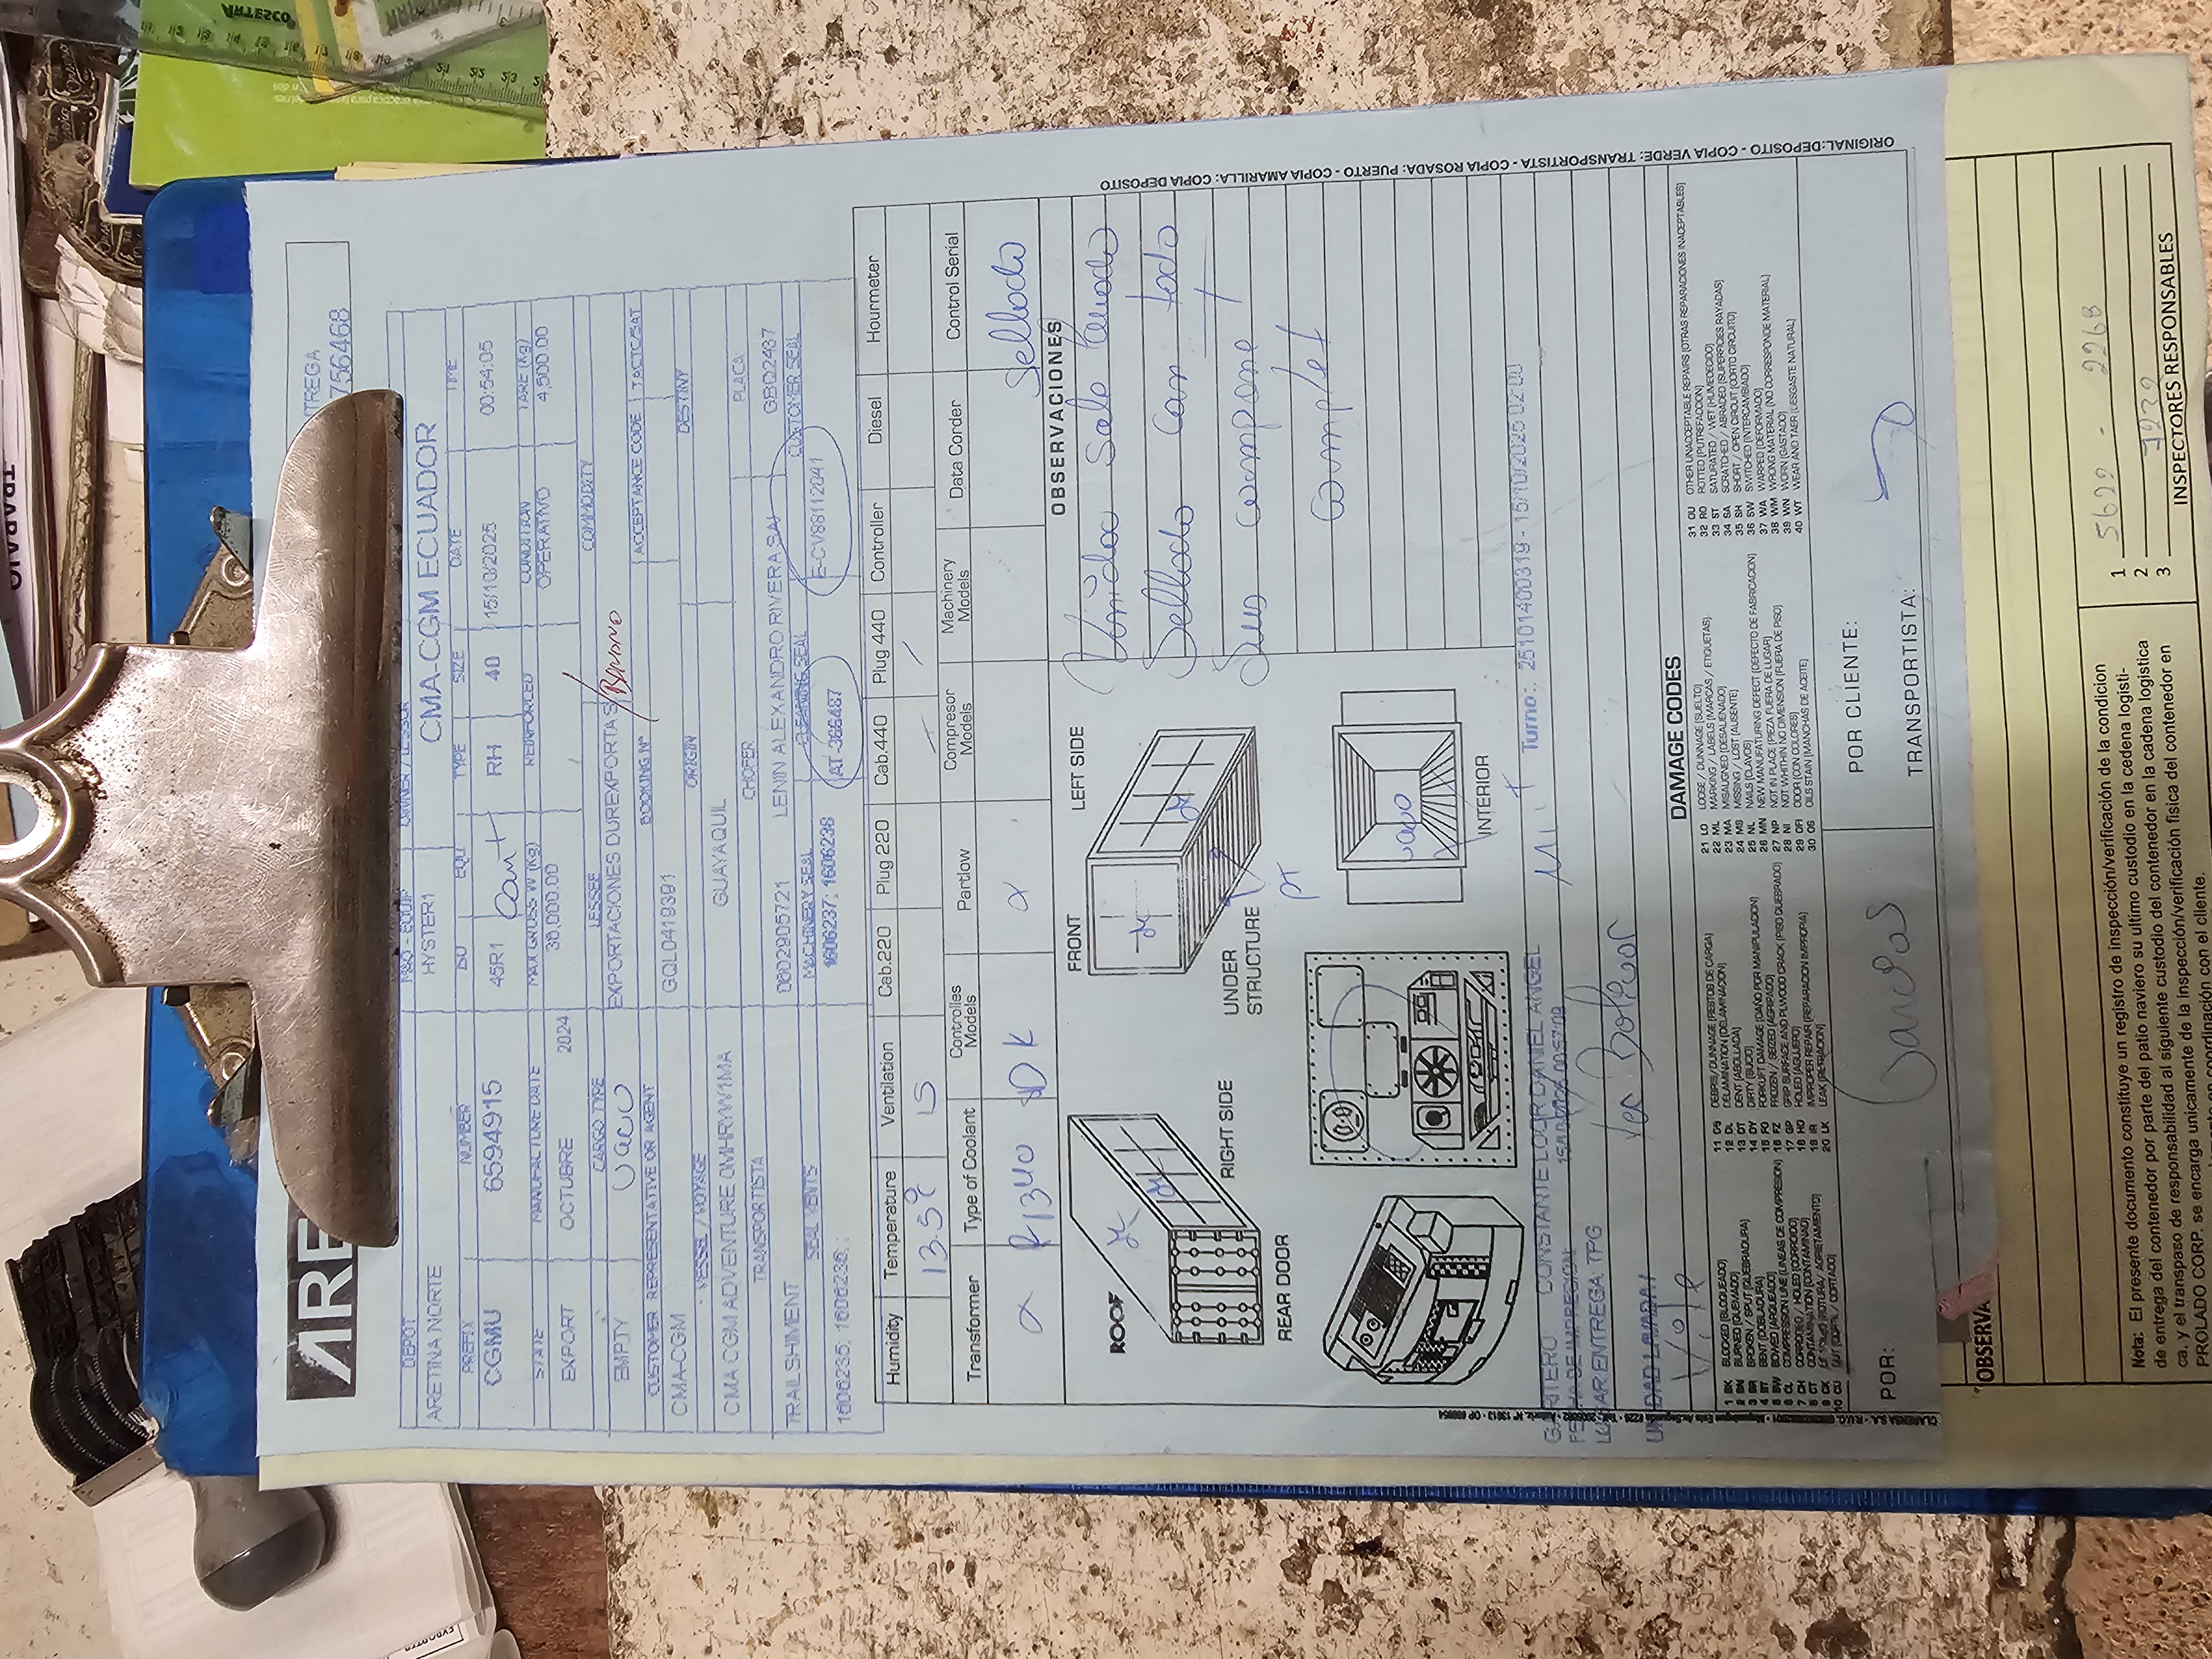 TRAVAIO
ARE
TREGA
756468
DEPOT M&O - EQUIP OWNER / LESSOR
ARETINA NORTE HYSTER1 CMA-CGM ECUADOR
PREFIX NUMBER ISO EQU. TYPE SIZE DATE TIME
CGMU 6594915 45R1 Carrt RH 40 15/10/2025 00:54:05
STATE MANUFACTURE DATE MAX GROSS W (Kg) REINFORCED CONDITION TARE (Kg)
EXPORT OCTUBRE 2024 36,000.00 OPERATIVO 4,500.00
CARGO TYPE LESSEE COMMODITY
EMPTY vacio EXPORTACIONES DUREXPORTA S/BANANO
CUSTOMER REPRESENTATIVE OR AGENT BOOKING Nº ACCEPTANCE CODE TACTC/SAT
CMA-CGM GQL0419391
VESSEL / VOYAGE ORIGIN DESTINY
CMA CGM ADVENTURE 0MHRYW1MA GUAYAQUIL
TRANSPORTISTA CHOFER PLACA
TRAILSHIMENT 0602905721 LENIN ALEXANDRO RIVERA SAI GBQ2437
SEAL VENTS MACHINERY SEAL CLEANING SEAL CUSTOMER SEAL
1606235; 1606236; ; 1606237; 1606238 AT-366487 E-CV88112041
Humidity Temperature Ventilation Cab.220 Plug 220 Cab.440 Plug 440 Controller Diesel Hourmeter
13.5ºc 15
Transformer Type of Coolant Controlles Models Partlow Compresor Models Machinery Models Data Corder Control Serial
R134a DK Sellado
OBSERVACIONES
Unidad Sale Lavado
Sellado Con todo
Sus compone
complet
ROOF
RIGHT SIDE
REAR DOOR
FRONT LEFT SIDE
UNDER STRUCTURE
PT
vacio
INTERIOR
GARITERO: CONSTANTE LOOR DANIEL ANGEL Turno:. 25101400319 - 15/10/2025 02:00
FECHA DE IMPRESION: 15/10/2025 00:57:09
LUGAR ENTREGA: TPG
Bolivar
UNIDAD LAVADA /
DAMAGE CODES
1 BK BLOCKED (BLOQUEADO)
2 BN BURNED (QUEMADO)
3 BR BROKEN / SPLIT (QUEBRADURA)
4 BT BENT (DOBLADURA)
5 BW BOWED (ARQUEADO)
6 CL COMPRESSION LINE (LINEAS DE COMPRESION)
7 CH CORRODED / HOLED (CORROIDO)
8 CT CONTAMINATION (CONTAMINAD)
9 CK (ROTURA / AGRIETAMIENTO)
10 CU CUT (CORTE / CORTADO)
11 DB DEBRIS/DUNNAGE (RESTOS DE CARGA)
12 DL DELAMINATION (DELAMINACION)
13 DT DENT (ABOLLADA)
14 DY DIRTY (SUCIO)
15 FO FORKLIFT DAMAGE (DAÑO POR MANIPULACION)
16 FZ FROZEN / SEIZED (AGRIPADO)
17 GP GRIP SURFACE AND PLWOOD CRACK (PISO QUEBRADO)
18 HO HOLED (AGUJERO)
19 IR IMPROPER REPAIR (REPARACION IMPROPIA)
20 LK LEAK (FILTRACION)
21 LO LOOSE / DUNNAGE (SUELTO)
22 ML MARKING / LABELS (MARCAS / ETIQUETAS)
23 MA MISALIGNED (DESALIENADO)
24 MS MISSING / LOST (AUSENTE)
25 NL NAILS (CLAVOS)
26 MN NEW MANUFATURING DEFECT (DEFECTO DE FABRICACION)
27 NP NOT IN PLACE (PIEZA FUERA DE LUGAR)
28 NI NOT WHITHIN NO DIMENSION (FUERA DE PISO)
29 OR ODOR (CON COLORES)
30 OS OILS STAIN (MANCHAS DE ACEITE)
31 OU OTHER UNACCEPTABLE REPAIRS (OTRAS REPARACIONES INACEPTABLES)
32 RO ROTTED (PUTREFACCION)
33 ST SATURATED / WET (HUMEDECIDO)
34 SA SCRATCHED / ABRADED (SUPERFICIES RAYADAS)
35 SH SHORT / OPEN CIRCUIT (CORTO CIRCUITO)
36 SW SWITCHED (INTERCAMBIADO)
37 WA WARPED (DEFORMADO)
38 WM WRONG MATERIAL (NO CORRESPONDE MATERIAL)
39 WN WORN (GASTADO)
40 WT WEAR AND TAER (DESGASTE NATURAL)
POR:
POR CLIENTE:
TRANSPORTISTA:
ORIGINAL:DEPOSITO - COPIA VERDE: TRANSPORTISTA - COPIA ROSADA: PUERTO - COPIA AMARILLA: COPIA DEPOSITO
OBSERVA
Nota: El presente documento constituye un registro de inspección/verificación de la condicion
de entrega del contenedor por parte del patio naviero su ultimo custodio en la cedena logisti-
ca, y el transpaso de responsabilidad al siguiente custodio del contenedor en la cadena logistica
PROLADO CORP. se encarga unicamente de la inspección/verificación fisica del contenedor en
en coordinación con el cliente.
1 5622 - 2268
2
3 7232
INSPECTORES RESPONSABLES
ARTESCO